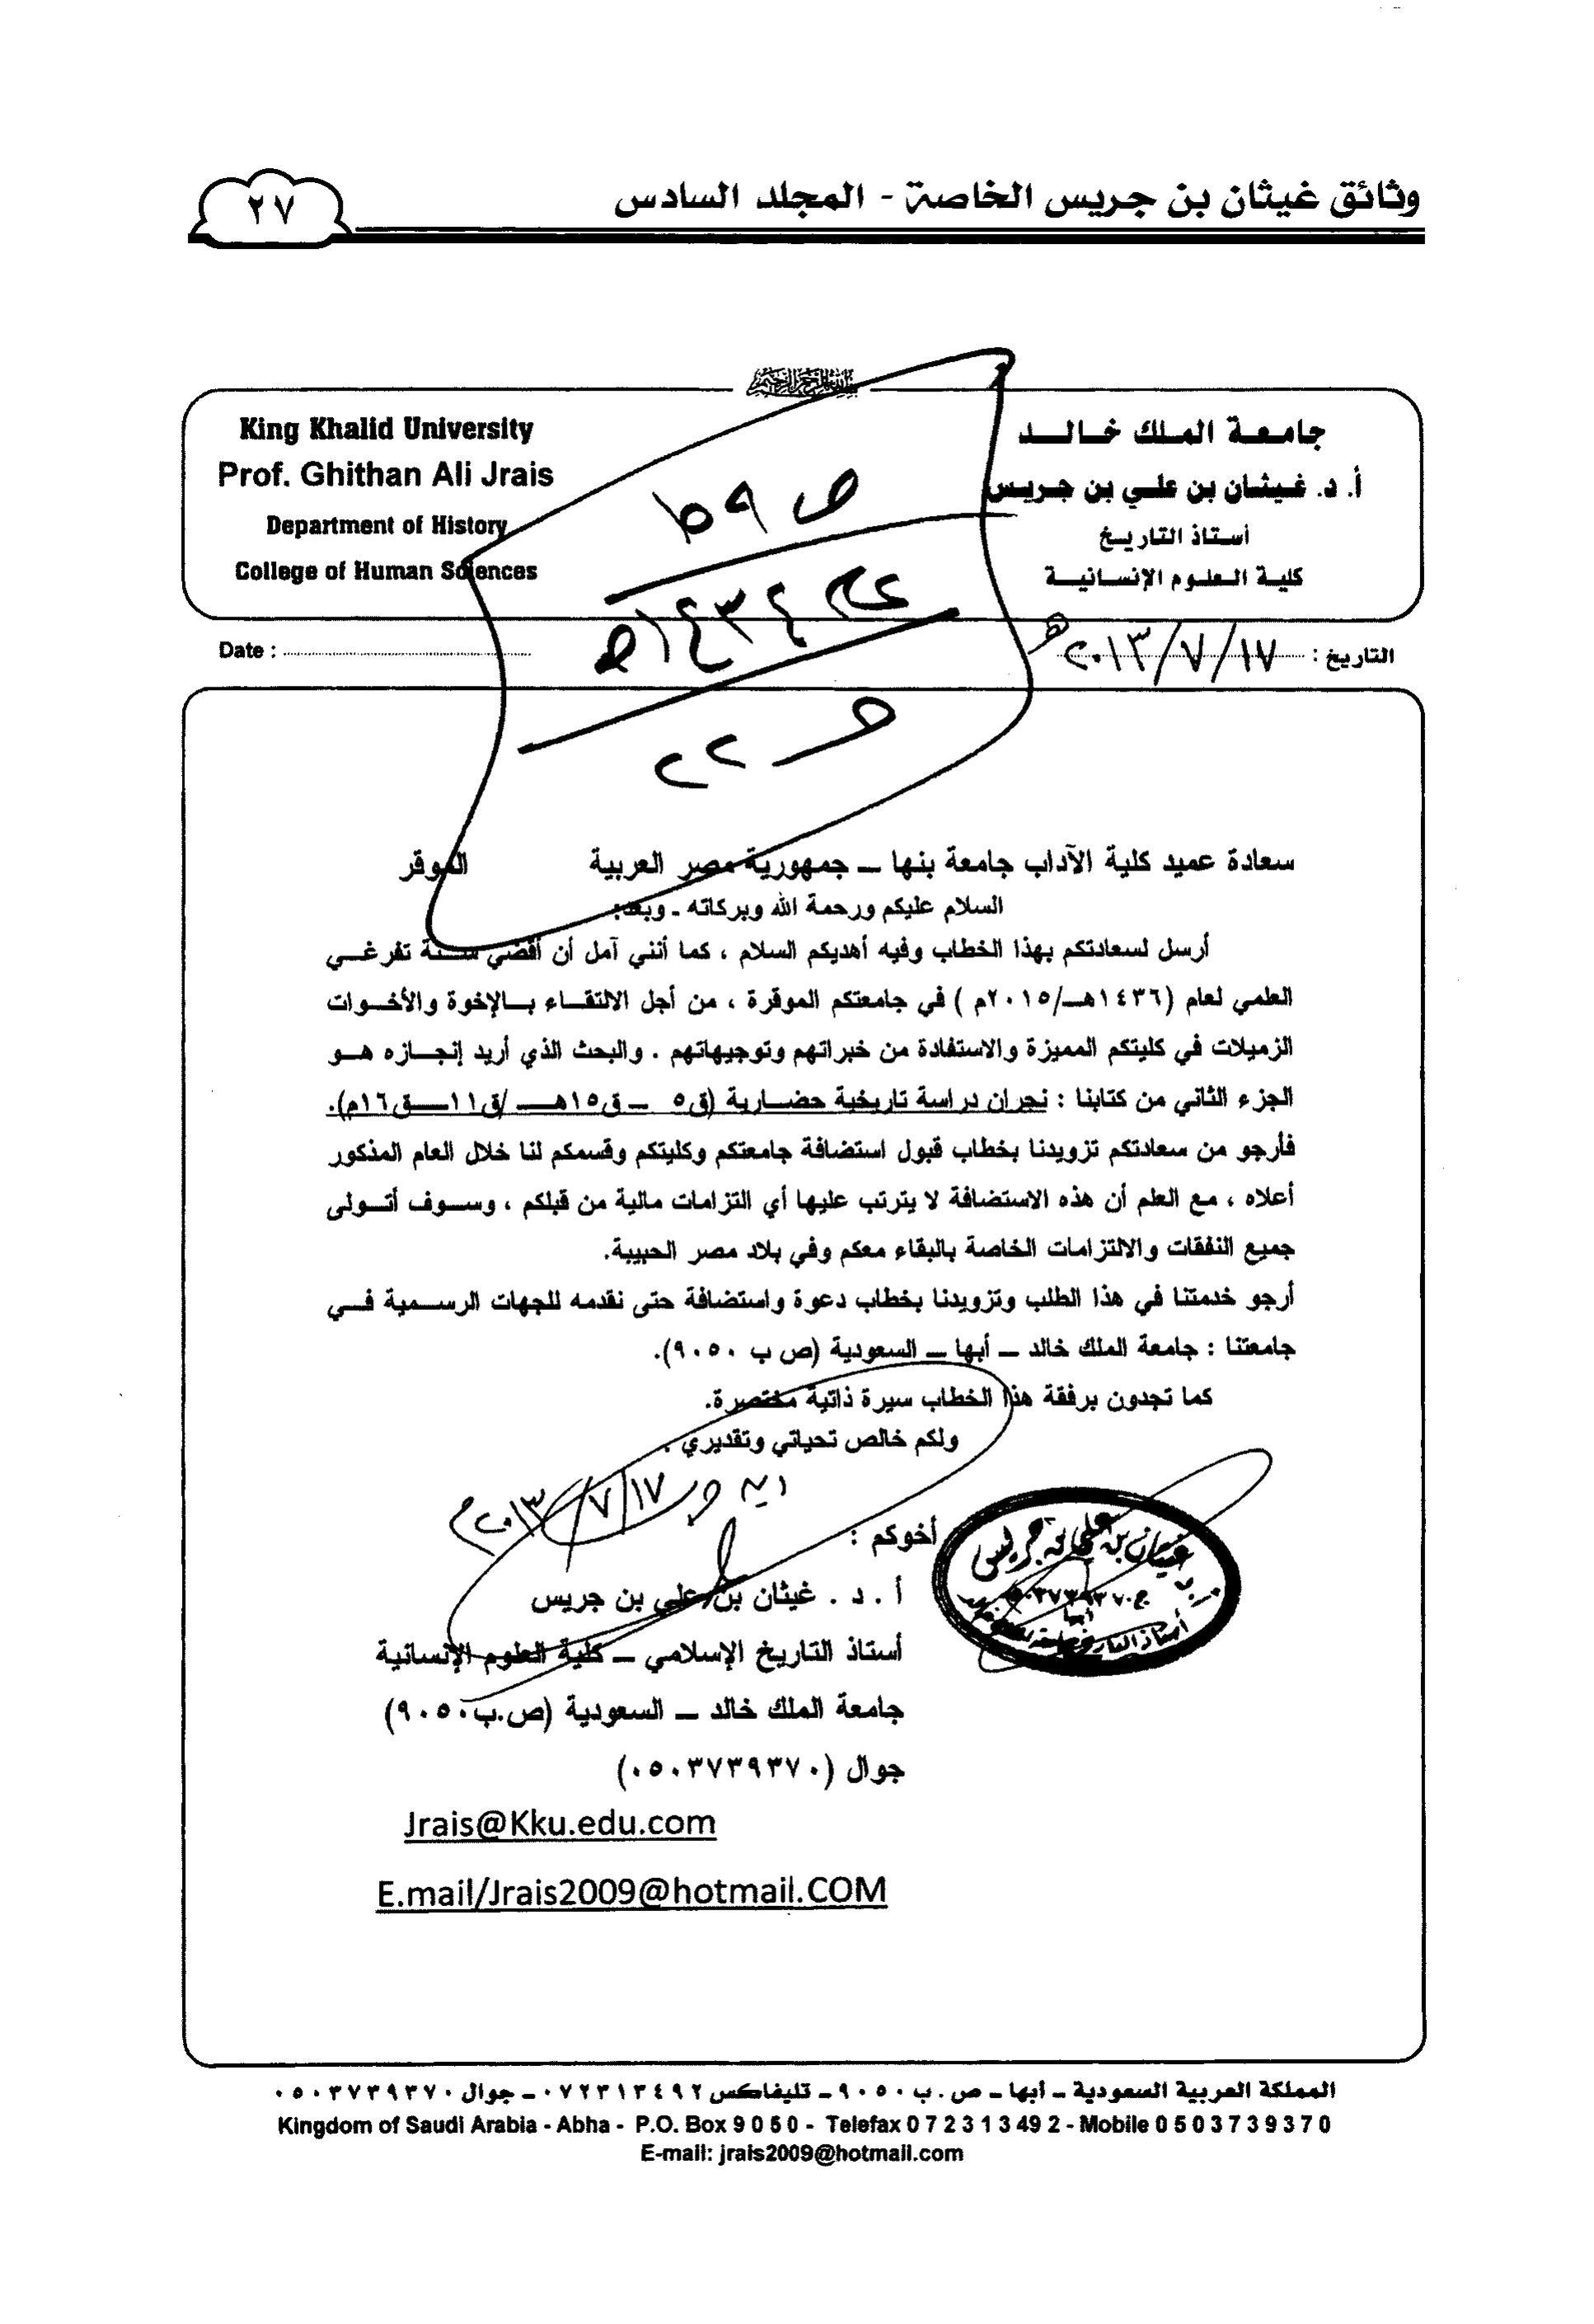 وثائق غيثان بن جريس الخاصة - المجلد السادس
٢٧
بسم الله الرحمن الرحيم
جامعة الملك خالد
أ. د. غيثان بن علي بن جريس
أستاذ التاريخ
كلية العلوم الإنسانية
King Khalid University
Prof. Ghithan Ali Jrais
Department of History
College of Human Sciences
التاريخ : ١٧/٧/٢٠١٣هـ
Date :
سعادة عميد كلية الآداب جامعة بنها – جمهورية مصر العربية الموقر
السلام عليكم ورحمة الله وبركاته - وبعد:
أرسل لسعادتكم بهذا الخطاب وفيه أهديكم السلام ، كما أنني آمل أن أقضي سنة تفرغي
العلمي لعام (١٤٣٦هـ/٢٠١٥م ) في جامعتكم الموقرة ، من أجل الالتقاء بالإخوة والأخوات
الزميلات في كليتكم المميزة والاستفادة من خبراتهم وتوجيهاتهم . والبحث الذي أريد إنجازه هو
الجزء الثاني من كتابنا : نجران دراسة تاريخية حضارية (ق٥ – ق١٥هـ /ق١١–ق١٦م).
فأرجو من سعادتكم تزويدنا بخطاب قبول استضافة جامعتكم وكليتكم وقسمكم لنا خلال العام المذكور
أعلاه ، مع العلم أن هذه الاستضافة لا يترتب عليها أي التزامات مالية من قبلكم ، وسوف أتولى
جميع النفقات والالتزامات الخاصة بالبقاء معكم وفي بلاد مصر الحبيبة.
أرجو خدمتنا في هذا الطلب وتزويدنا بخطاب دعوة واستضافة حتى نقدمه للجهات الرسمية في
جامعتنا : جامعة الملك خالد – أبها – السعودية (ص ب ٩٠٥٠).
كما تجدون برفقة هذا الخطاب سيرة ذاتية مختصرة.
ولكم خالص تحياتي وتقديري .
١٧/٧/٢٠١٣م
أخوكم :
أ . د . غيثان بن علي بن جريس
أستاذ التاريخ الإسلامي – كلية العلوم الإنسانية
جامعة الملك خالد – السعودية (ص.ب ٩٠٥٠)
جوال (٠٥٠٣٧٣٩٣٧٠)
Jrais@Kku.edu.com
E.mail/Jrais2009@hotmail.COM
غيثان بن علي بن جريس
المملكة العربية السعودية – أبها – ص . ب ٩٠٥٠ – تليفاكس ٠٧٢٣١٣٤٩٢ – جوال ٠٥٠٣٧٣٩٣٧٠
Kingdom of Saudi Arabia - Abha - P.O. Box 9 0 5 0 - Telefax 0 7 2 3 1 3 49 2 - Mobile 0 5 0 3 7 3 9 3 7 0
E-mail: jrais2009@hotmail.com